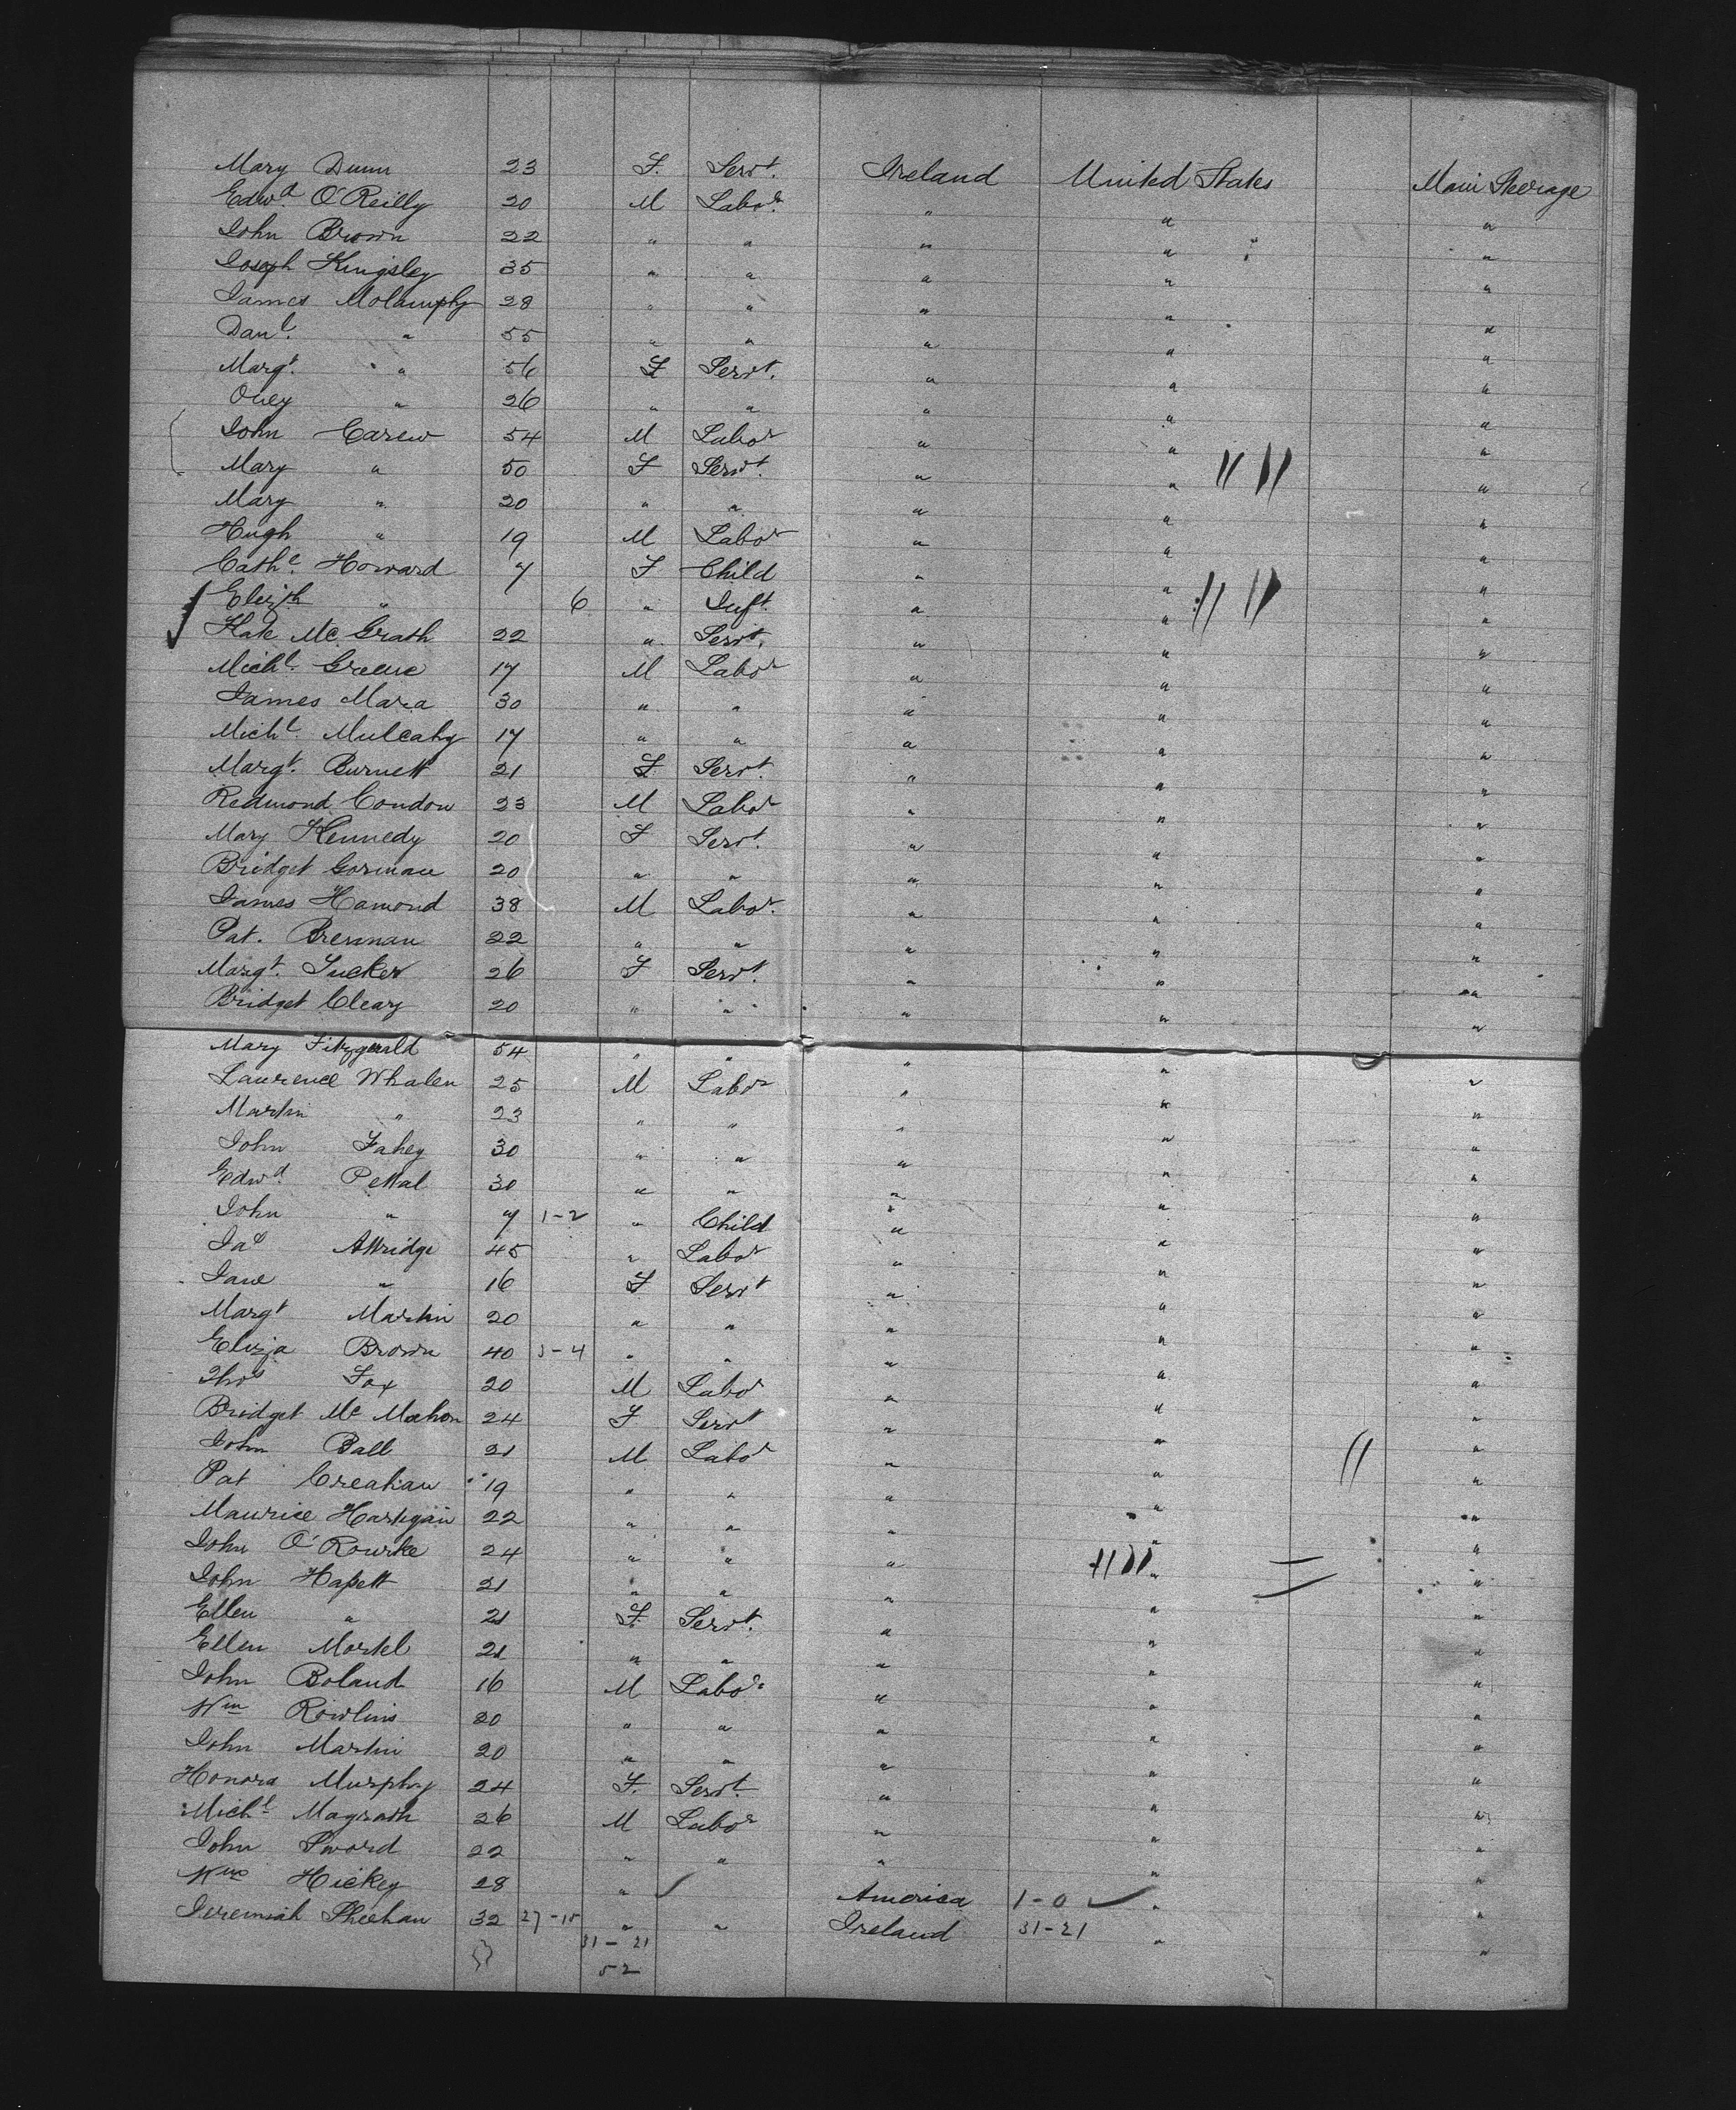 Mary Dunn 23 F. Servt. Ireland United States Main Steerage
Edwd. O'Reilly 20 M Labor. " " "
John Brown 22 " " " " "
Joseph Kingsley 35 " " " " "
James Molamphy 28 " " " " "
Danl. " 55 " " " " "
Margt. " 56 F Servt. " " "
Oney " 26 " " " " "
John Carew 54 M Labor " " "
Mary " 50 F Servt. " " "
Mary " 20 " " " " "
Hugh " 19 M Labor " " "
Cathe. Howard 7 F Child " " "
Elizth " 6 " Inft. " " "
Kate McGrath 22 " Servt. " " "
Michl. Greene 17 M Labor " " "
James Mara 30 " " " " "
Michl. Mulcahy 17 " " " " "
Margt. Burnett 21 F Servt. " " "
Redmond Condon 23 M Labor " " "
Mary Kennedy 20 F Servt. " " "
Bridget Gorman 20 " " " " "
James Hamond 38 M Labor. " " "
Pat. Brennan 22 " " " " "
Margt. Tucker 26 F Servt. " " "
Bridget Cleary 20 " " " " "
Mary Fitzgerald 54 " " " " "
Laurence Whalen 25 M Labor " " "
Martin " 23 " " " " "
John Fahey 30 " " " " "
Edwd. Pettal 30 " " " " "
John " 7 1-2 " Child " " "
Jas Attridge 45 " Labor " " "
Jane " 16 F Servt " " "
Margt Martin 20 " " " " "
Eliza Brown 40 3-4 " " " " "
Thos Fox 20 M Labor " " "
Bridget Mc Mahon 24 F Servt " " "
John Ball 21 M Labor " " "
Pat Creahan 19 " " " " "
Maurice Hartigan 22 " " " " "
John O'Rourke 24 " " " " "
John Hassett 21 " " " " "
Ellen " 21 F. Servt. " " "
Ellen Mortel 21 " " " " "
John Boland 16 M Labor " " "
Wm Rowlins 20 " " " " "
John Martin 20 " " " " "
Honora Murphy 24 F. Servt. " " "
Michl Magrath 26 M Labor " " "
John Sword 22 " " " " "
Wm Hickey 28 " America 1-0 " "
Jeremiah Sheehan 32 27-15 " " Ireland 31-21 " "
31-21
52